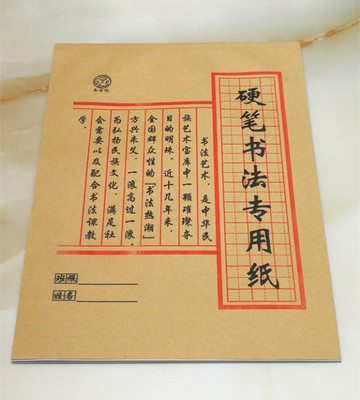 硬笔书法专用纸
书法艺术，是中华民
族艺术宝库中一颗璀璨夺
目的明珠。近十几年来，
全国群众性的“书法热潮”
方兴未艾，一浪高过一浪。
为弘扬民族文化，满足社
会需要以及配合书法课教
学，
班级
姓名